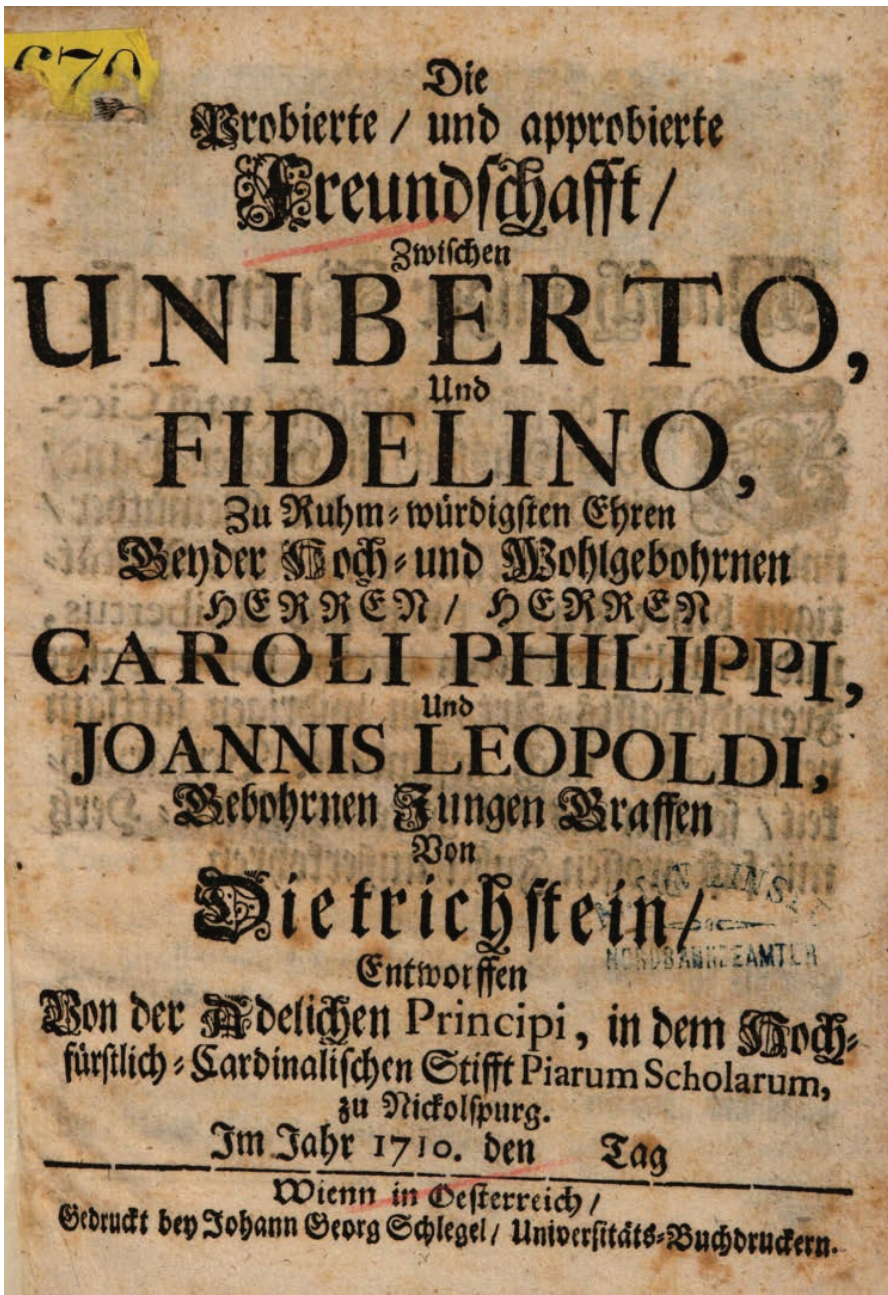 670
Die
Probierte / und approbierte
Freundschafft /
Zwischen
UNIBERTO,
Und
FIDELINO,
Zu Ruhm-würdigsten Ehren
Beyder Hoch- und Wohlgebohrnen
HERREN / HERREN
CAROLI PHILIPPI,
Und
JOANNIS LEOPOLDI,
Gebohrnen Jungen Graffen
Von
Dietrichstein /
Entworffen
Von der Adelichen Principi, in dem Hoch-
fürstlich-Cardinalischen Stifft Piarum Scholarum,
zu Nickolspurg.
Im Jahr 1710. den Tag
Wienn in Oesterreich /
Gedruckt bey Johann Georg Schlegel / Universitäts-Buchdruckern.